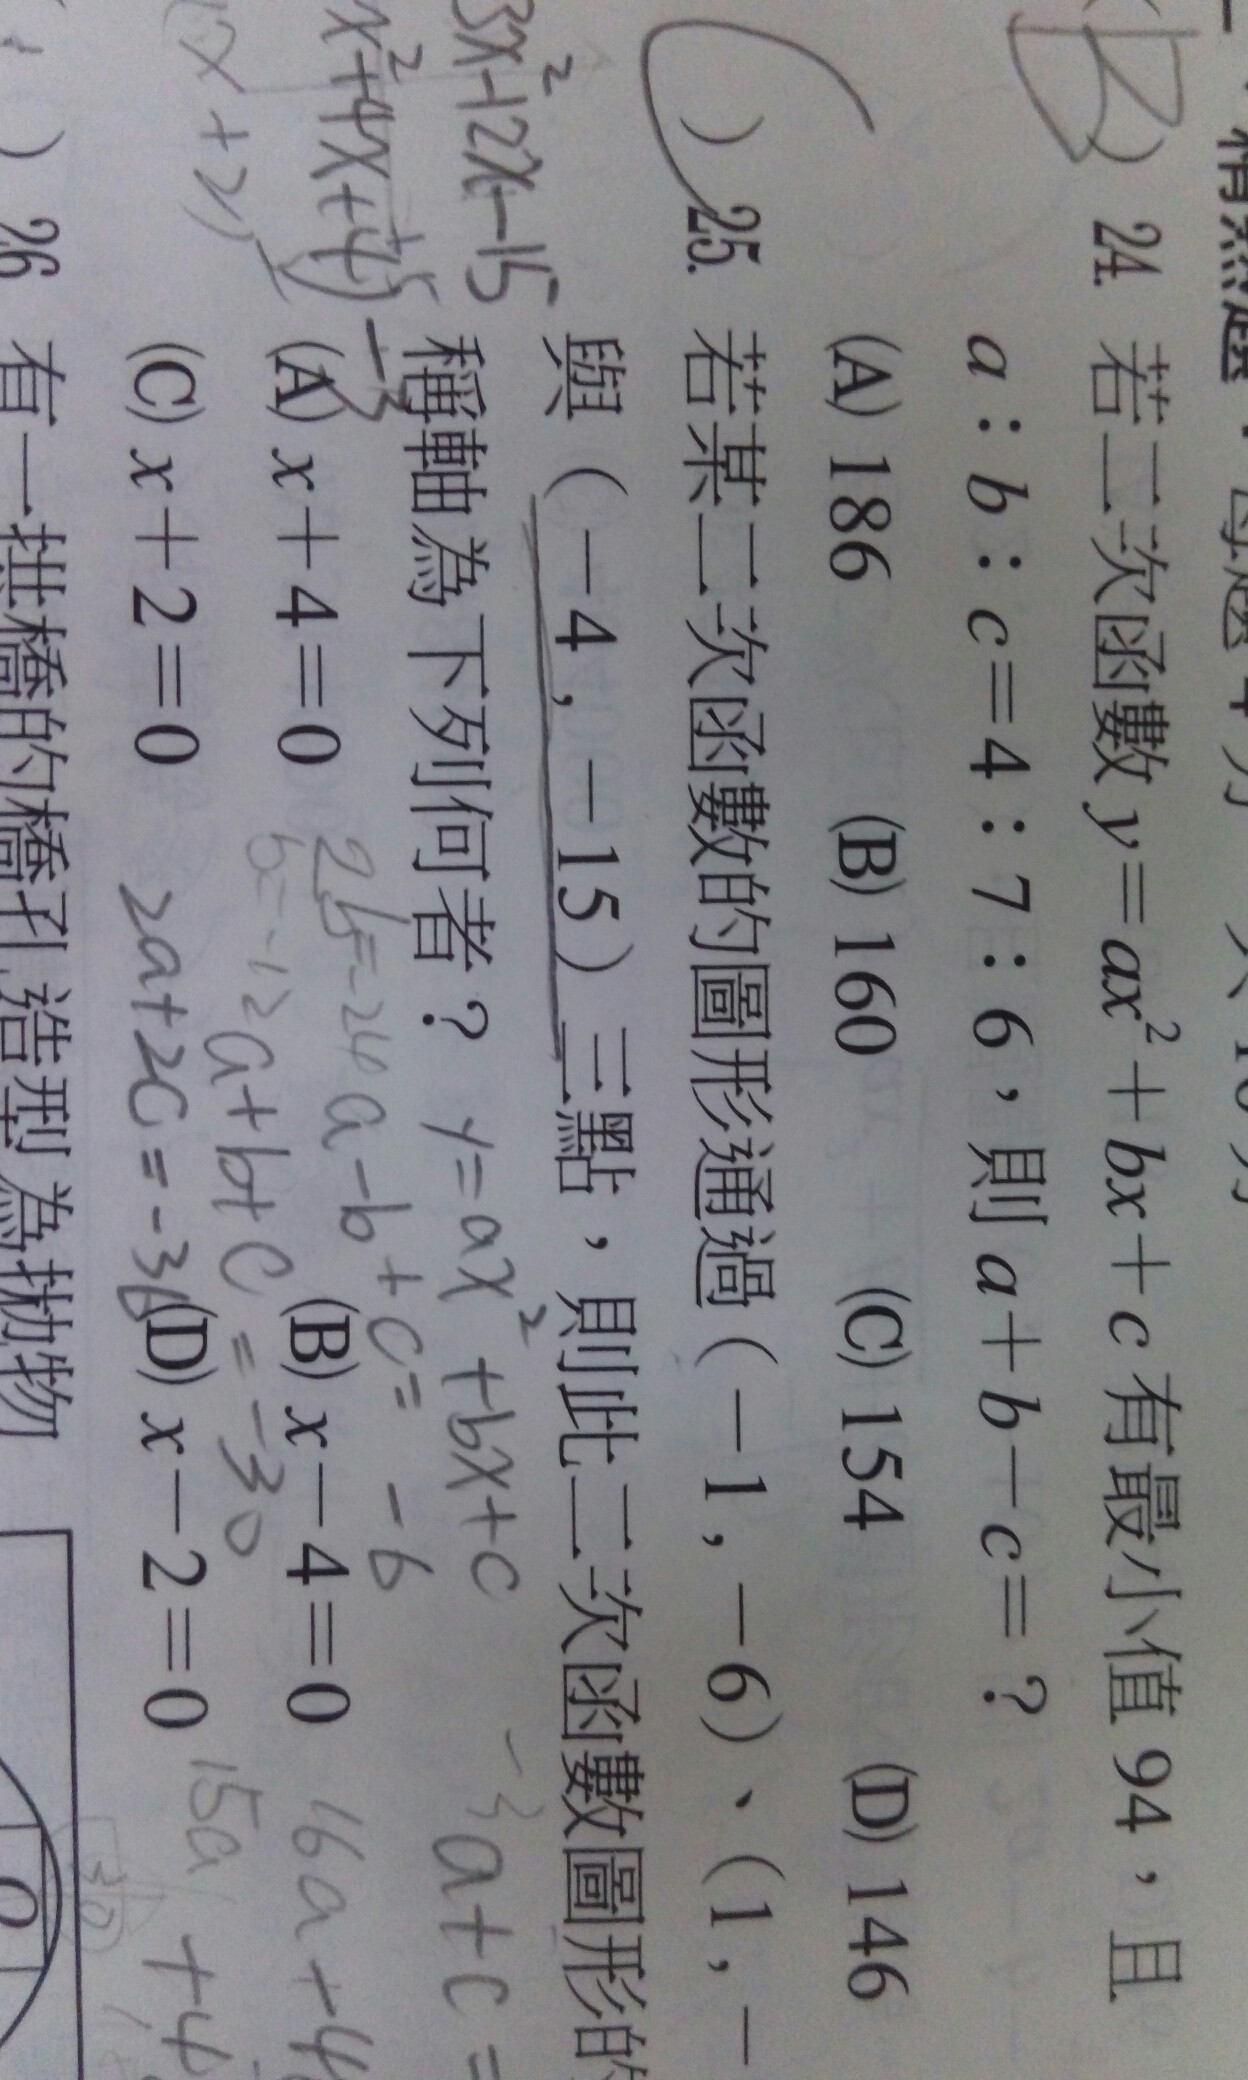 24. 若二次函數 y=ax²+bx+c 有最小值 94,且
a:b:c=4:7:6,則 a+b-c=?
(A) 186 (B) 160 (C) 154 (D) 146
) 25. 若某二次函數的圖形通過(-1,-6)、(1,-
與(-4,-15)三點,則此二次函數圖形的
稱軸為下列何者?
(A) x+4=0 (B) x-4=0
(C) x+2=0 (D) x-2=0
) 26 有一拱橋的橋孔造型為拋物
y=ax²+bx+c
a-b+c=-6
a+b+c=-30
2a+2c=-36
2b=-24
b=-12
a+c=
16a+4
15a+4